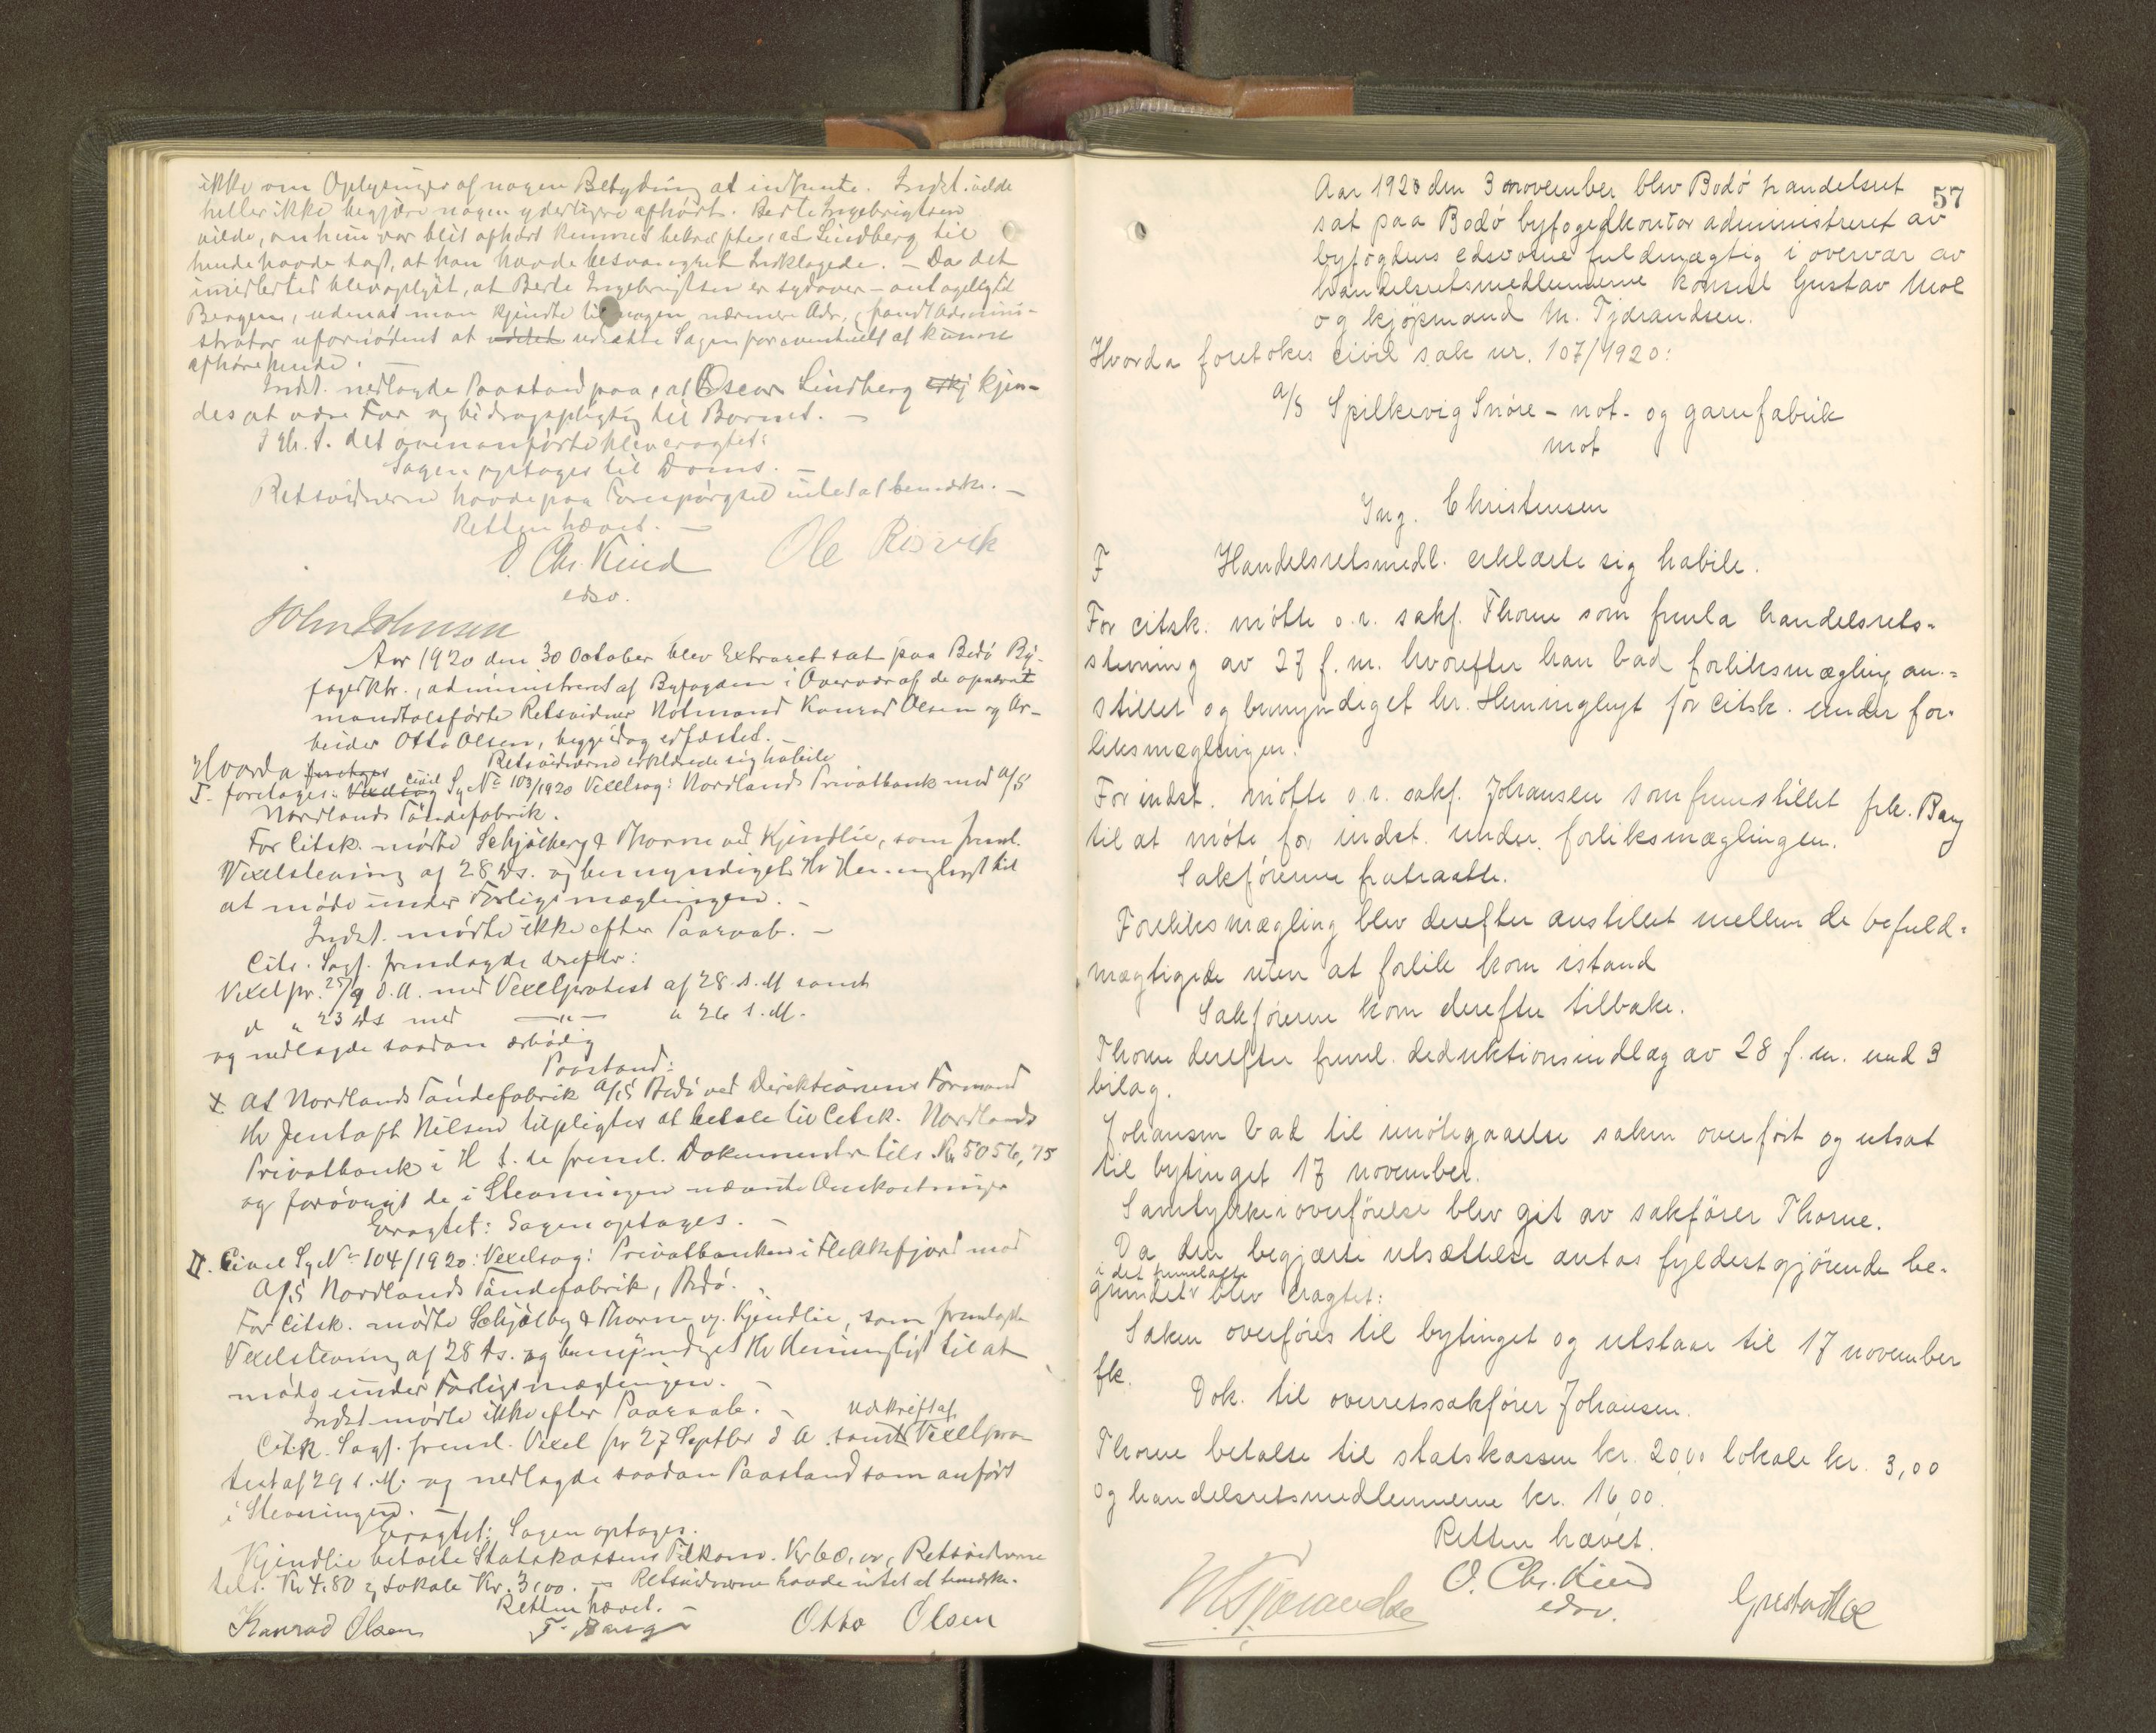 ikke om Oplysninger af nogen Betydning at indhente. Indst. vilde
heller ikke begjære nogen yderligere afhørt. Berte Ingebrigtsen
vilde, om hun var blit afhørt kunnet bekræfte, at Lindberg til
hende havde sagt, at han havde besvangret Indklagede. – Da det
imidlertid blev oplyst, at Berte Ingebrigtsen er sydover – antageligt
Bergen, uden at man kjendte til nogen nærmere Adr., fandt Admini-
strator ufornødent at udsætte Sagen for eventuelt at kunne
afhøre hende. –
Indst. nedlagde Paastand paa, at Oscar Lindberg kjen-
des at være Far og bidragspligtig til Barnet. –
I Kh. t. det ovenanførte blev eragtet:
Sagen optages til Doms. –
Retsvidnerne havde paa Forespørgsel intet at bemærke. –
Retten hævet. –
O. Chr. Kind
edsv.
Ole Risvik
John Johnsen
Aar 1920 den 30 October blev Extraret sat paa Bodø By-
fogedktr., administreret af Byfogden i Overvær af de opnævnte
mandtalsførte Retsvidner Notmand Konrad Olsen og Ar-
beider Otto Olsen, begge idag edfæsted. –
Retsvidnerne erklærede sig habile
Hvorda foretages
I. foretages: Vexelsag civil Sg No 103/1920 Vexelsag: Nordlands Privatbank mod A/S
Nordlands Töndefabrik.
For Citsk. mødte Schjølberg & Thorne ved Kjendlie, som freml.
Vexelstevning af 28 ds. og bemyndiget Hr Henninglygt til
at møde under Forligsmæglingen. –
Indst. mødte ikke efter Paaraab. –
Cits. Sagf. fremlagde derefter:
Vexel pr. 25/9 d.A. med Vexelprotest af 28 d.M samt
" " 23 ds med —"— " 26 d.M.
og nedlagde saadan ærbødig
Paastand:
At Nordlands Töndefabrik A/S Bodø ved Direktionens Formand
Hr Jentoft Nilsen tilpligtes at betale til Citsk. Nordlands
Privatbank i H. t. de freml. Dokumenter tils. Kr 5056,75
og forøvrigt de i Stevningen nævnte Omkostninger
Eragtet: Sagen optages. –
II. Civil Sg No 104/1920: Vexelsag: Privatbanken i Flekkefjord mod
A/S Nordlands Töndefabrik, Bodø.
For Citsk. mødte Schjølbg & Thorne v. Kjendlie, som fremlagde
Vexelstevning af 28 ds. og bemyndiget Hr Henninglygt til at
møde under Forligsmæglingen. –
Indst mødte ikke efter Paaraab. –
Citsk. Sagf. freml. Vexel pr 27 Septbr d A. samt Udskrift af Vexelpro-
test af 29 d.M. og nedlagde saadan Paastand som anført
i Stevningen. –
Eragtet: Sagen optages.
Kjendlie betalte Statskassens Tilkom. Kr 60,00, Retsvidnerne
tils. Kr 4.80 og Lokale Kr. 3,00. – Retsvidnerne havde intet at bemærke.
Retten hævet. –
Konrad Olsen
F. Bang
Otto Olsen
57
Aar 1920 den 3 november blev Bodø handelsret
sat paa Bodø byfogedkontor administreret av
byfogdens edsvorne fuldmægtig i overvær av
handelsretsmedlemmerne konsul Gustav Moe
og kjøpmand M. Tjærandsen.
Hvorda foretokes civil sak nr. 107/1920:
A/S Spilkevig Snöre – not- og garnfabrik
mot
Ing. Christensen
F Handelsretsmedl. erklærte sig habile.
For citsk. møtte o.r. sakf. Thorne som fremla handelsrets-
stevning av 27 f.m. hvorefter han bad forliksmægling an-
stillet og bemyndiget hr. Henninglygt for citsk. under for-
liksmæglingen.
For indst. møtte o.r. sakf. Johansen som fremstillet frk. Bang
til at møte for indst. under forliksmæglingen.
Sakførerne fratraadte.
Forliksmægling blev derefter anstillet mellem de befuld-
mægtigede uten at forlik kom istand
Sakførerne kom derefter tilbake.
Thorne derefter freml. deduktionsindlæg av 28 f.m. med 3
bilag.
Johansen bad til imøtegaaelse saken overført og utsat
til bytinget 17 november.
Samtykke i overførelse blev git av sakfører Thorne.
Da den begjærte utsættelse antas fyldestgjørende be-
grundet i det fremlagte blev eragtet:
Saken overføres til bytinget og utstaar til 17 november
fk.
Dok. til overretssakfører Johansen.
Thorne betalte til statskassen kr. 20,00 lokale kr. 3,00
og handelsretsmedlemmerne kr. 16,00.
Retten hævet.
M. Tjærandsen
O. Chr. Kind
edsv.
Gustav Moe